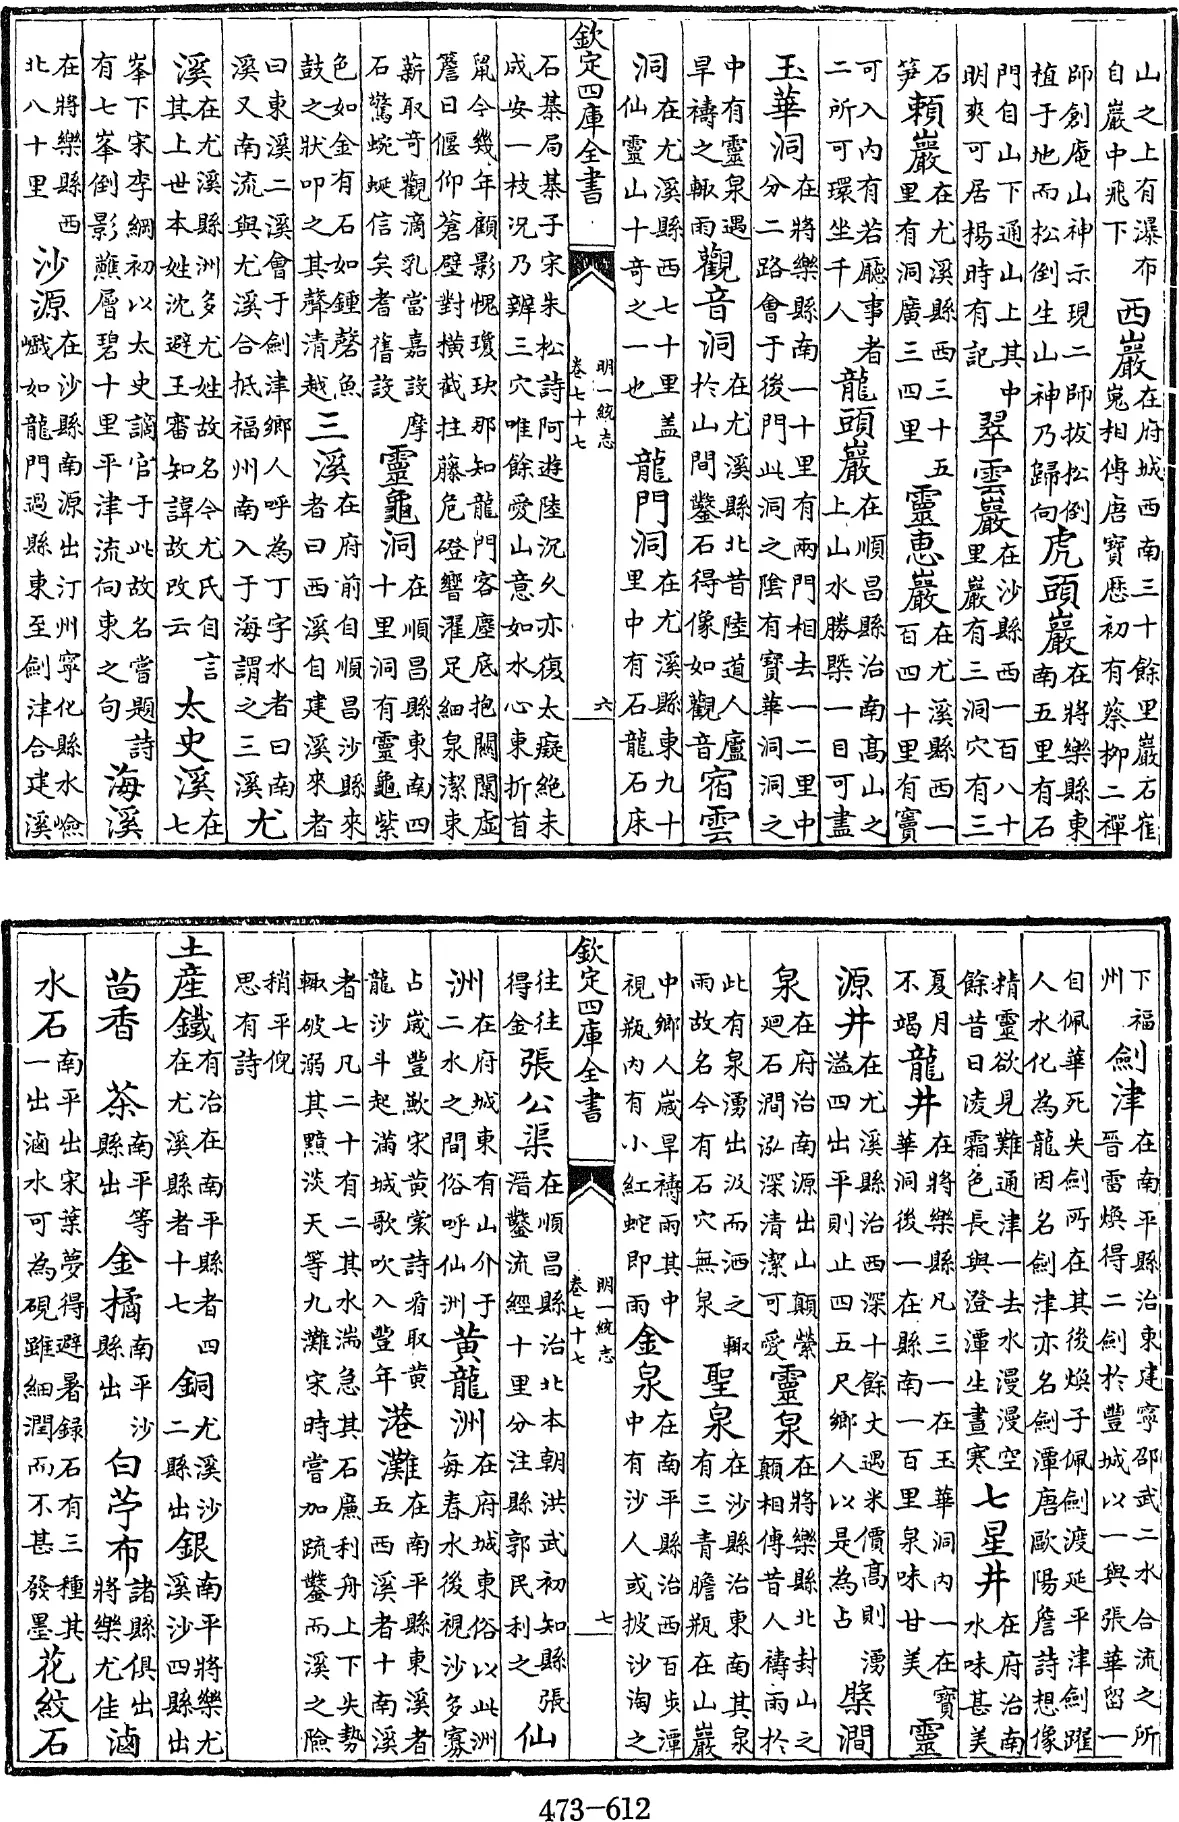 山之上有瀑布自巖中飛下西巖在府城西南三十餘里巖石崔嵬相傳唐寶歴初有蔡柳二禪
師創庵山神示現二師拔松倒植于地而松倒生山神乃歸向虎頭巖在將樂縣東南五里有石
門自山下通山上其中明爽可居楊時有記翠雲巖在沙縣西一百八十里巖有三洞穴有三
石笋賴巖在尤溪縣西三十五里有洞廣三四里靈惠巖在尤溪縣西一百四十里有竇
可入內有若廳事者二所可環坐千人龍頭巖在順昌縣治南高山之上山水勝槩一目可盡
玉華洞在將樂縣南一十里有兩門相去一二里中分二路會于後門此洞之陰有寶華洞洞之
中有靈泉遇旱禱之輙雨觀音洞在尤溪縣北昔陸道人廬於山間鑿石得像如觀音宿雲
洞在尤溪縣西七十里蓋仙靈山十奇之一也龍門洞在尤溪縣東九十里中有石龍石床
欽定四庫全書 明一統志 卷七十七 六
石棊局棊子宋朱松詩阿遊陸沉久亦復太癡絶未成安一枝況乃辨三穴唯餘愛山意如水心東折首
鼠今幾年顧影愧瓊玦那知龍門客塵底抱關闑虚簷日偃仰蒼壁對横截拄藤危磴響濯足細泉潔東
薪取奇觀滴乳當嘉設摩石驚蜿蜒信矣耆舊說靈龜洞在順昌縣東南四十里洞有靈龜紫
色如金有石如鍾磬魚鼓之狀叩之其聲清越三溪在府前自順昌沙縣來者曰西溪自建溪來者
曰東溪二溪會于劍津鄉人呼為丁字水者曰南溪又南流與尤溪合抵福州南入于海謂之三溪尤
溪在尤溪縣洲多尤姓故名今尤氏自言其上世本姓沈避王審知諱故改云太史溪在七
峯下宋李綱初以太史謫官于此故名嘗題詩有七峯倒影蘸層碧十里平津流向東之句海溪
在將樂縣西北八十里沙源在沙縣南源出汀州寧化縣水嶮巇如龍門過縣東至劍津合建溪
下福州劍津在南平縣治東建寧邵武二水合流之所晉雷煥得二劍於豐城以一與張華留一
自佩華死失劍所在其後煥子佩劍渡延平津劍躍人水化為龍因名劍津亦名劍潭唐歐陽詹詩想像
精靈欲見難通津一去水漫漫空餘昔日凌霜色長與澄潭生晝寒七星井在府治南水味甚美
夏月不竭龍井在將樂縣凡三一在玉華洞內一在寶華洞後一在縣南一百里泉味甘美靈
源井在尤溪縣治西深十餘丈遇米價高則湧溢四出平則止四五尺鄉人以是為占槩澗
泉在府治南源出山顛縈廻石澗泓深清潔可愛靈泉在將樂縣北封山之顛相傳昔人禱雨於
此有泉湧出汲而洒之輙雨故名今有石穴無泉聖泉在沙縣治東南其泉有三青膽瓶在山巖
中鄉人歲旱禱雨其中視瓶內有小紅蛇即雨金泉在南平縣治西百步潭中有沙人或披沙淘之
欽定四庫全書 明一統志 卷七十七 七
往往得金張公渠在順昌縣治北本朝洪武初知縣張溍鑿流經十里分注縣郭民利之仙
洲在府城東有山介于二水之間俗呼仙洲黄龍洲在府城東俗以此洲每春水後視沙多寡
占歲豐歉宋黄裳詩看取黄龍沙斗起滿城歌吹入豐年港灘在南平縣東溪者五西溪者十南溪
者七凡二十有二其水湍急其石廉利舟上下失勢輙破溺其黯淡天等九灘宋時嘗加疏鑿而溪之險
稍平倪思有詩
土産鐵有冶在南平縣者四在尤溪縣者十七銅尤溪沙二縣出銀南平將樂尤溪沙四縣出
茴香 茶南平等縣出金橘南平沙縣出白苧布諸縣俱出將樂尤佳滷
水石南平出宋葉夢得避暑録石有三種其一出滷水可為硯雖細潤而不甚發墨花紋石
473-612